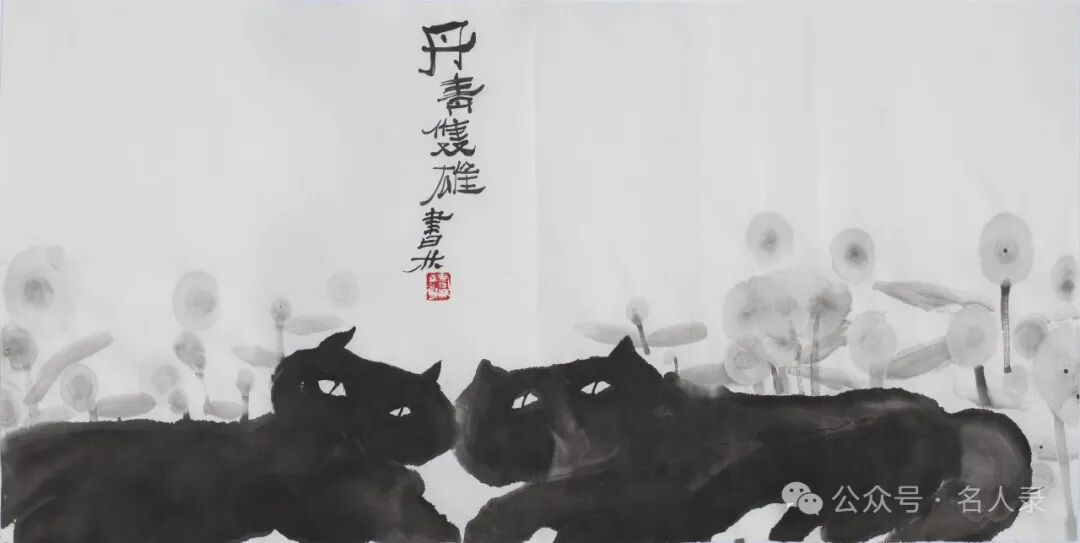 丹青雙雄
書
公众号·名人录